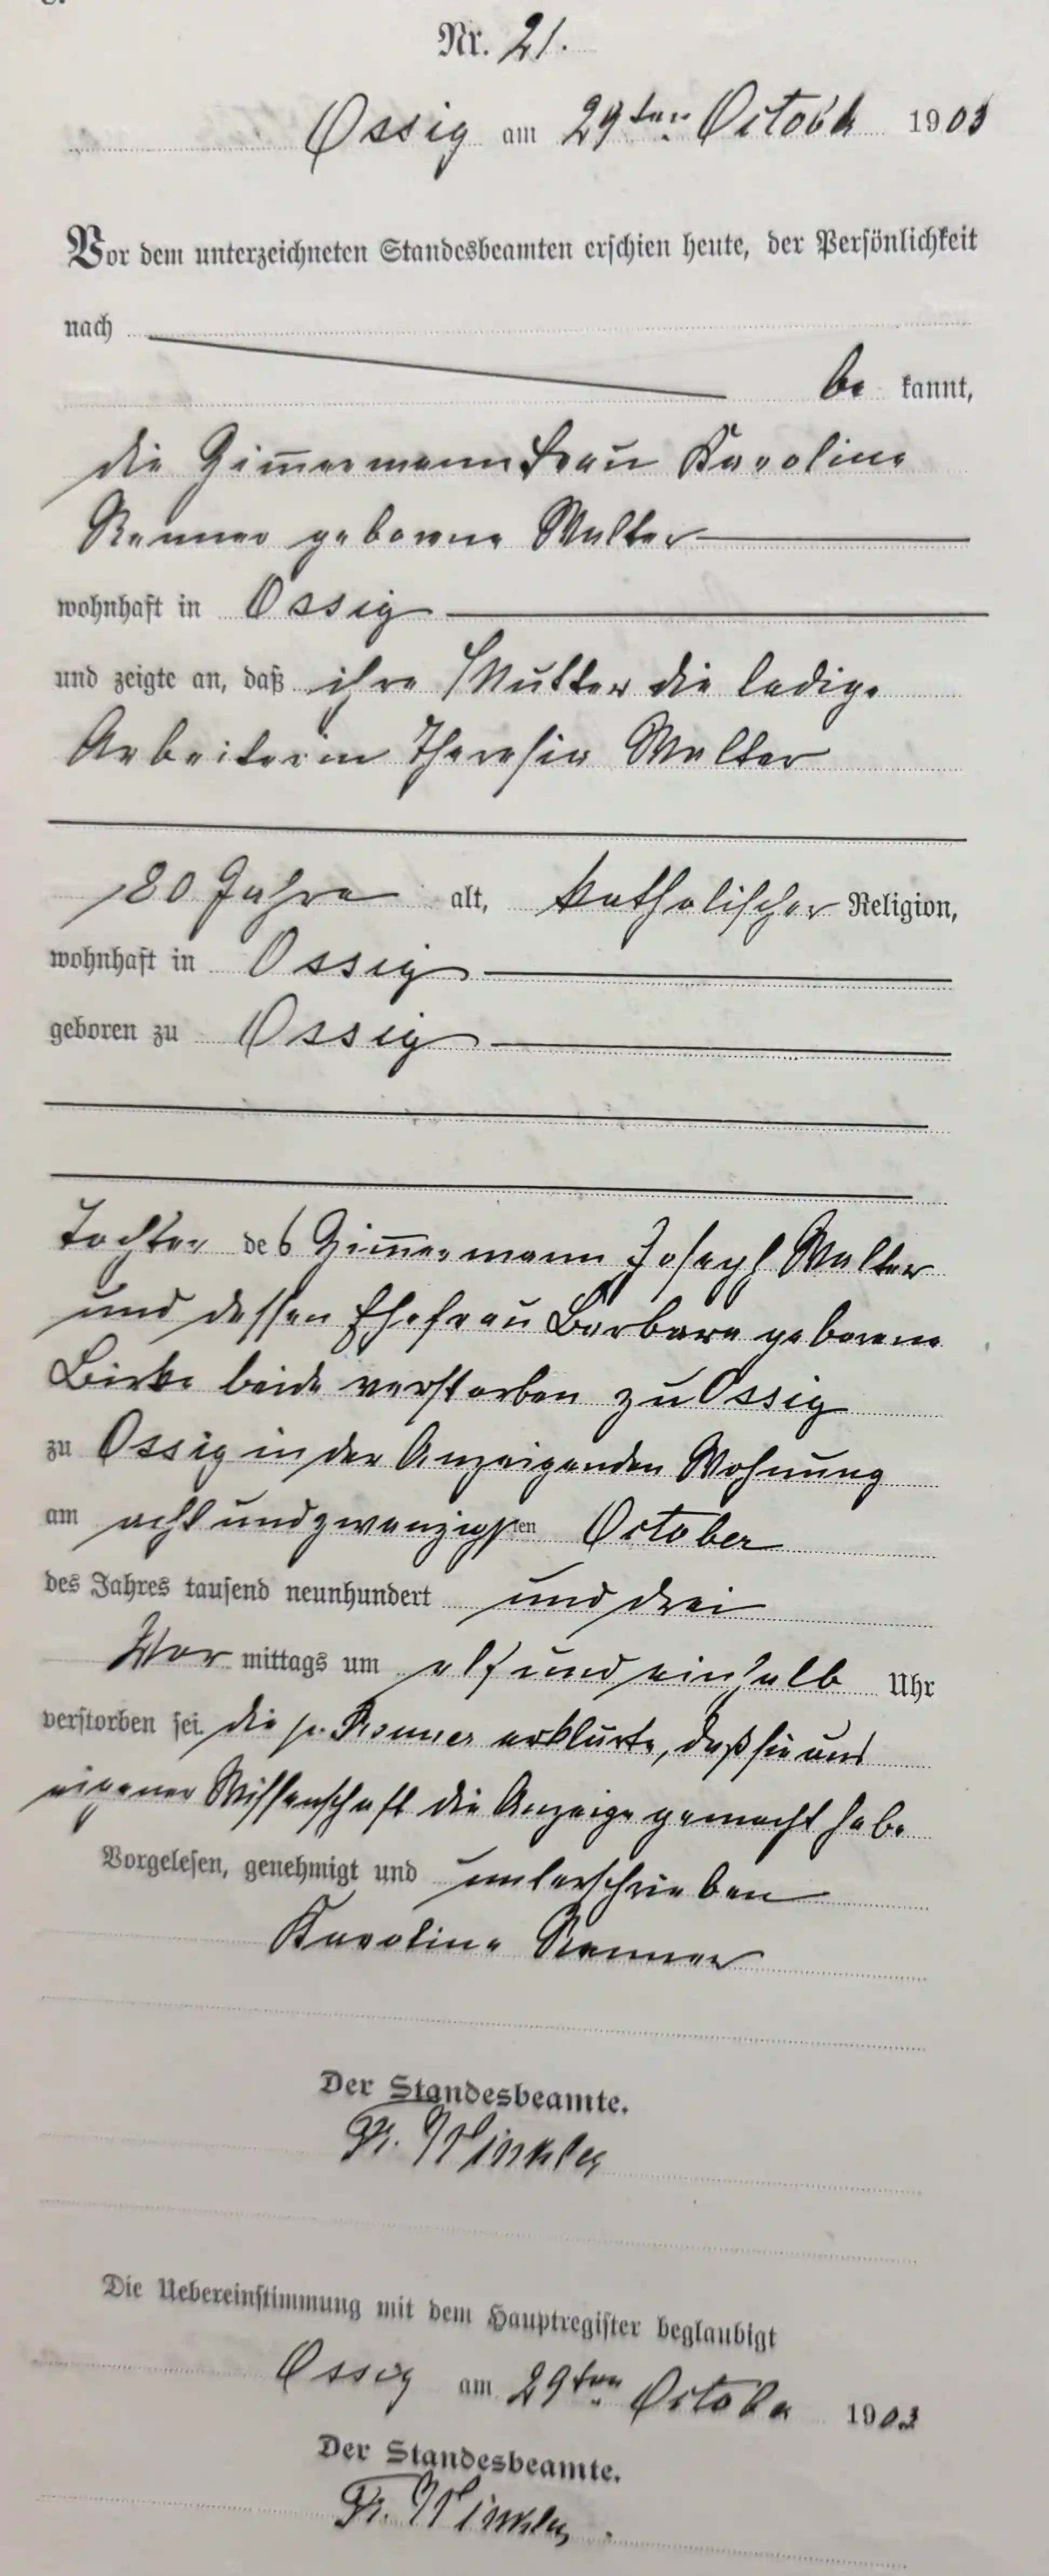 Nr. 21.
Ossig am 29ten October 1903
Vor dem unterzeichneten Standesbeamten erschien heute, der Persönlichkeit
nach
be kannt,
die Zim̅ermannfrau Karoline
Renner geborene Walter
wohnhaft in Ossig
und zeigte an, daß ihre Mutter die ledige
Arbeiterin Theresia Walter
80 Jahre alt, katholischer Religion,
wohnhaft in Ossig
geboren zu Ossig
Tochter des Zim̅ermann Joseph Walter
und dessen Ehefrau Barbara geborene
Birke beide verstorben zu Ossig
zu Ossig in der Anzeigenden Wohnung
am acht und zwanzigsten October
des Jahres tausend neunhundert und drei
Vor mittags um elf und einhalb Uhr
verstorben sei. die p. Renner erklärte, daß sie aus
eigener Wissenschaft die Anzeige gemacht habe
Vorgelesen, genehmigt und unterschrieben
Karoline Renner
Der Standesbeamte.
Fr. Winkler
Die Uebereinstimmung mit dem Hauptregister beglaubigt
Ossig am 29ten October 1903
Der Standesbeamte.
Fr. Winkler.